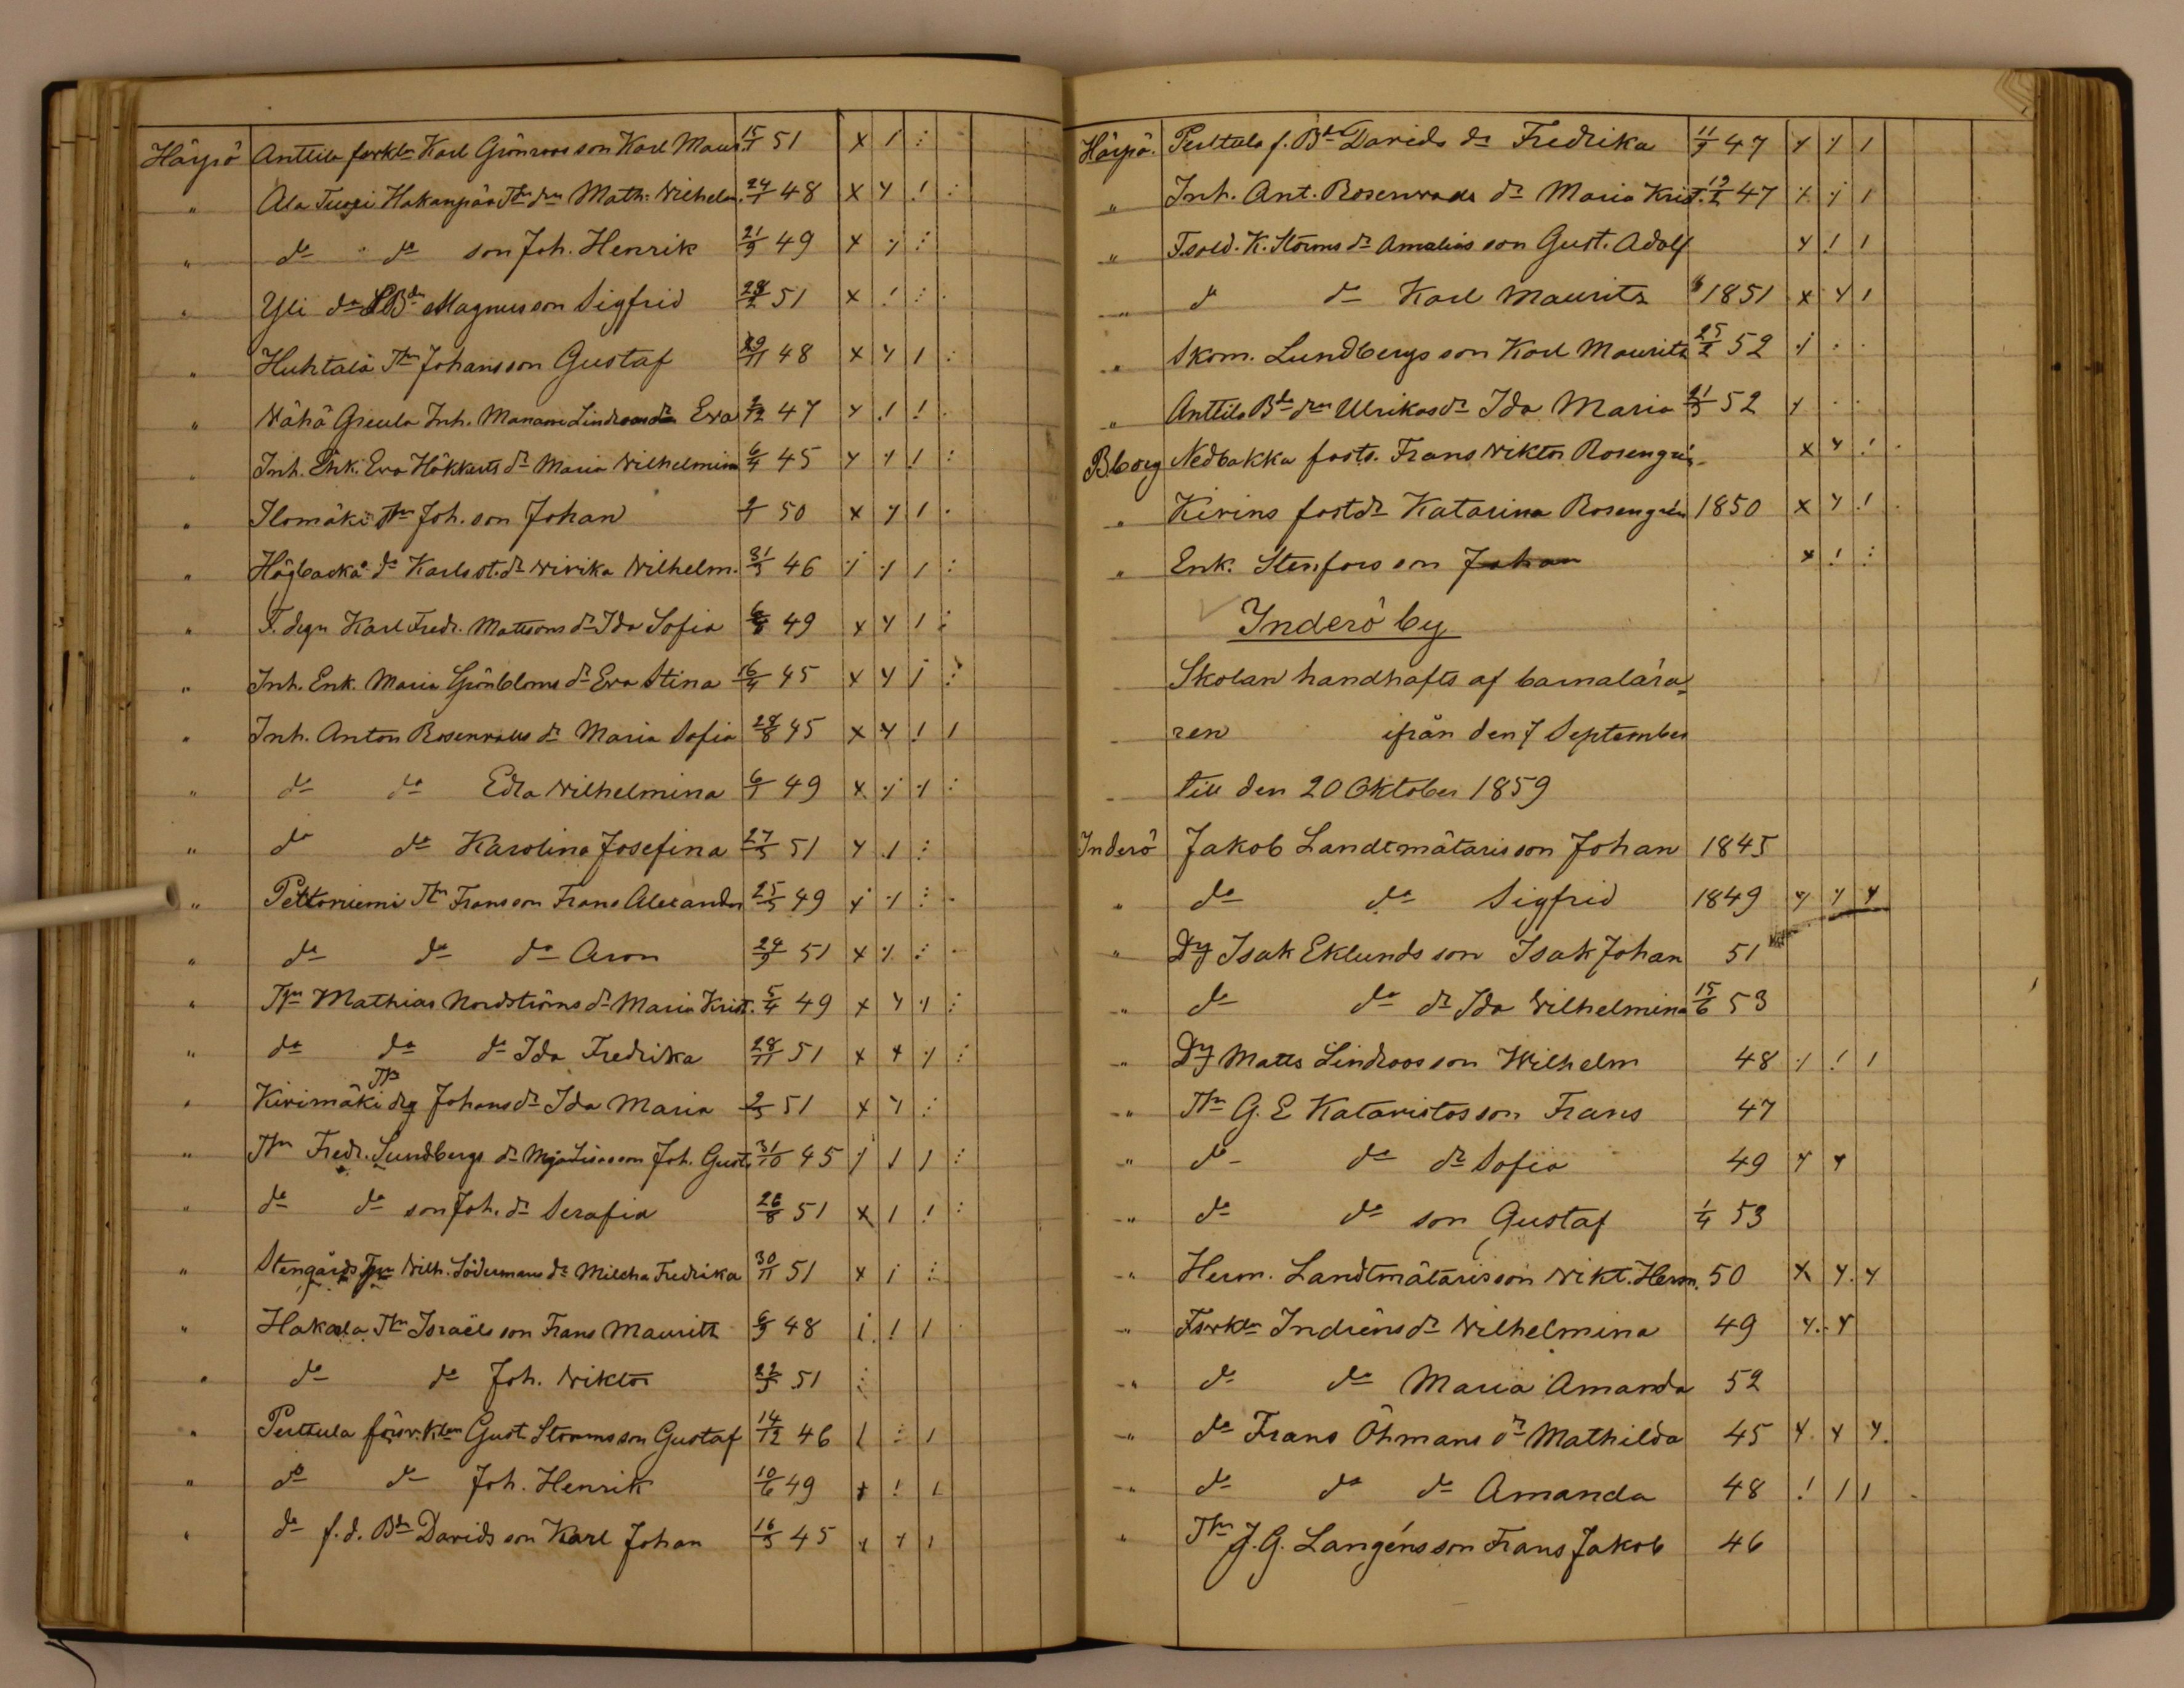 Härpö Anttila forkln Karl Grönroos son Karl Maur. 15/1 51 x / ⋮
" Ala Tuogi Hakanpää Thn drn Math. Wilhelm. 24/1 48 x y ! :
" do do son Joh. Henrik 21/3 49 x y ⋮
" Yli do Bdn Magnus son Sigfrid 28/2 51 x ! ⋮ .
" Huhtala Thn Johans son Gustaf 29/11 48 x y / :
" Wähä Greula Inh. Lindroos dr Eva 2/12 47 y ! ! .
" Inh. Enk. Eva Häkkerts dr Maria Wilhelmina 6/4 45 y y ! :
" Ilomäki Thn Joh. son Johan 2/1 50 x y / .
" Högbacka do Karls st. dr Wivika Wilhelm. 31/3 46 y y / :
" F. degn Karl Fredr. Mattsons dr Ida Sofia 6/8 49 x y / :
" Inh. Enk. Maria Grönbloms dr Eva Stina 16/4 45 x y / :
" Inh. Anton Rosenwalls dr Maria Sofia 28/8 45 x y ! /
" do do Edla Wilhelmina 6/1 49 x y y :
" do do Karolina Josefina 27/3 51 y / ⋮
" Pettoniemi Thn Frans son Frans Alexander 25/3 49 y y ⋮ .
" do do do Aron 24/9 51 x y ⋮ .
" Mathias Nordströms dr Maria Krist. 5/4 49 x y y :
" do do do Ida Fredrika 28/11 51 x x y :
" Kivimäki Johans dr Ida Maria 2/3 51 x y ⋮
" Thn Fredr. Sundbergs dr Maja Lisas son Joh. Gust. 31/10 45 y / / :
" do do son Joh. dr Serafia 26/8 51 x / ! :
" Stengårds Wilh. Södermans dr Milcha Fredrika 30/11 51 x i ⋮
" Hakala Thn Israëls son Frans Mauritz 6/9 48 i ! /
" do do Joh. Wiktor 22/3 51 ⋮
" Perttula försv.kln Gust. Storms son Gustaf 14/12 46 / ⋮ /
" do do Joh. Henrik 10/6 49 x ! /
" do f.d. Bdn Davids son Karl Johan 16/3 45 x y /
Härpö. Perttula f. Bdn Davids dr Fredrika 11/9 47 y y /
" Inh. Ant. Rosenvalls dr Maria Krist. 19/2 47 y y /
" F.sold. K. Storms dr Amalias son Gust. Adolf y ! /
" do do Karl Mauritz 1851 x y /
" Skom. Lundbergs son Karl Mauritz 25/2 52 y . .
" Anttila Bdn drn Ulrikas dr Ida Maria 21/3 52 y . .
B.borg Nedbakka fosts. Frans Wiktor Rosengrén x y ! .
" Kivins fostdr Katarina Rosengrén 1850 x y ! .
" Enk. Stenfors son Johan x ! ⋮
Inderö by
Skolan handhafts af barnalära=
ren ifrån den 7 September
till den 20 Oktober 1859
Inderö Jakob Landtmätaris son Johan 1845
" do do Sigfrid 1849 y y y
" Isak Eklunds son Isak Johan 51
" do do dr Ida Wilhelmina 15/6 53
" Matts Lindroos son Wilhelm 48 y ! /
" Thn G. E Kataristos son Frans 47
" do do dr Sofia 49 y y
" do do son Gustaf 1/4 53
" Herm. Landtmätaris son Wikt. Herm. 50 x y y
" Fsvkln Indréns dr Wilhelmina 49 y y
" do do Maria Amanda 52
" do Frans Öhmans dr Mathilda 45 y y y.
" do do do Amanda 48 ! / / .
" Thn J. G. Langéns son Frans Jakob 46